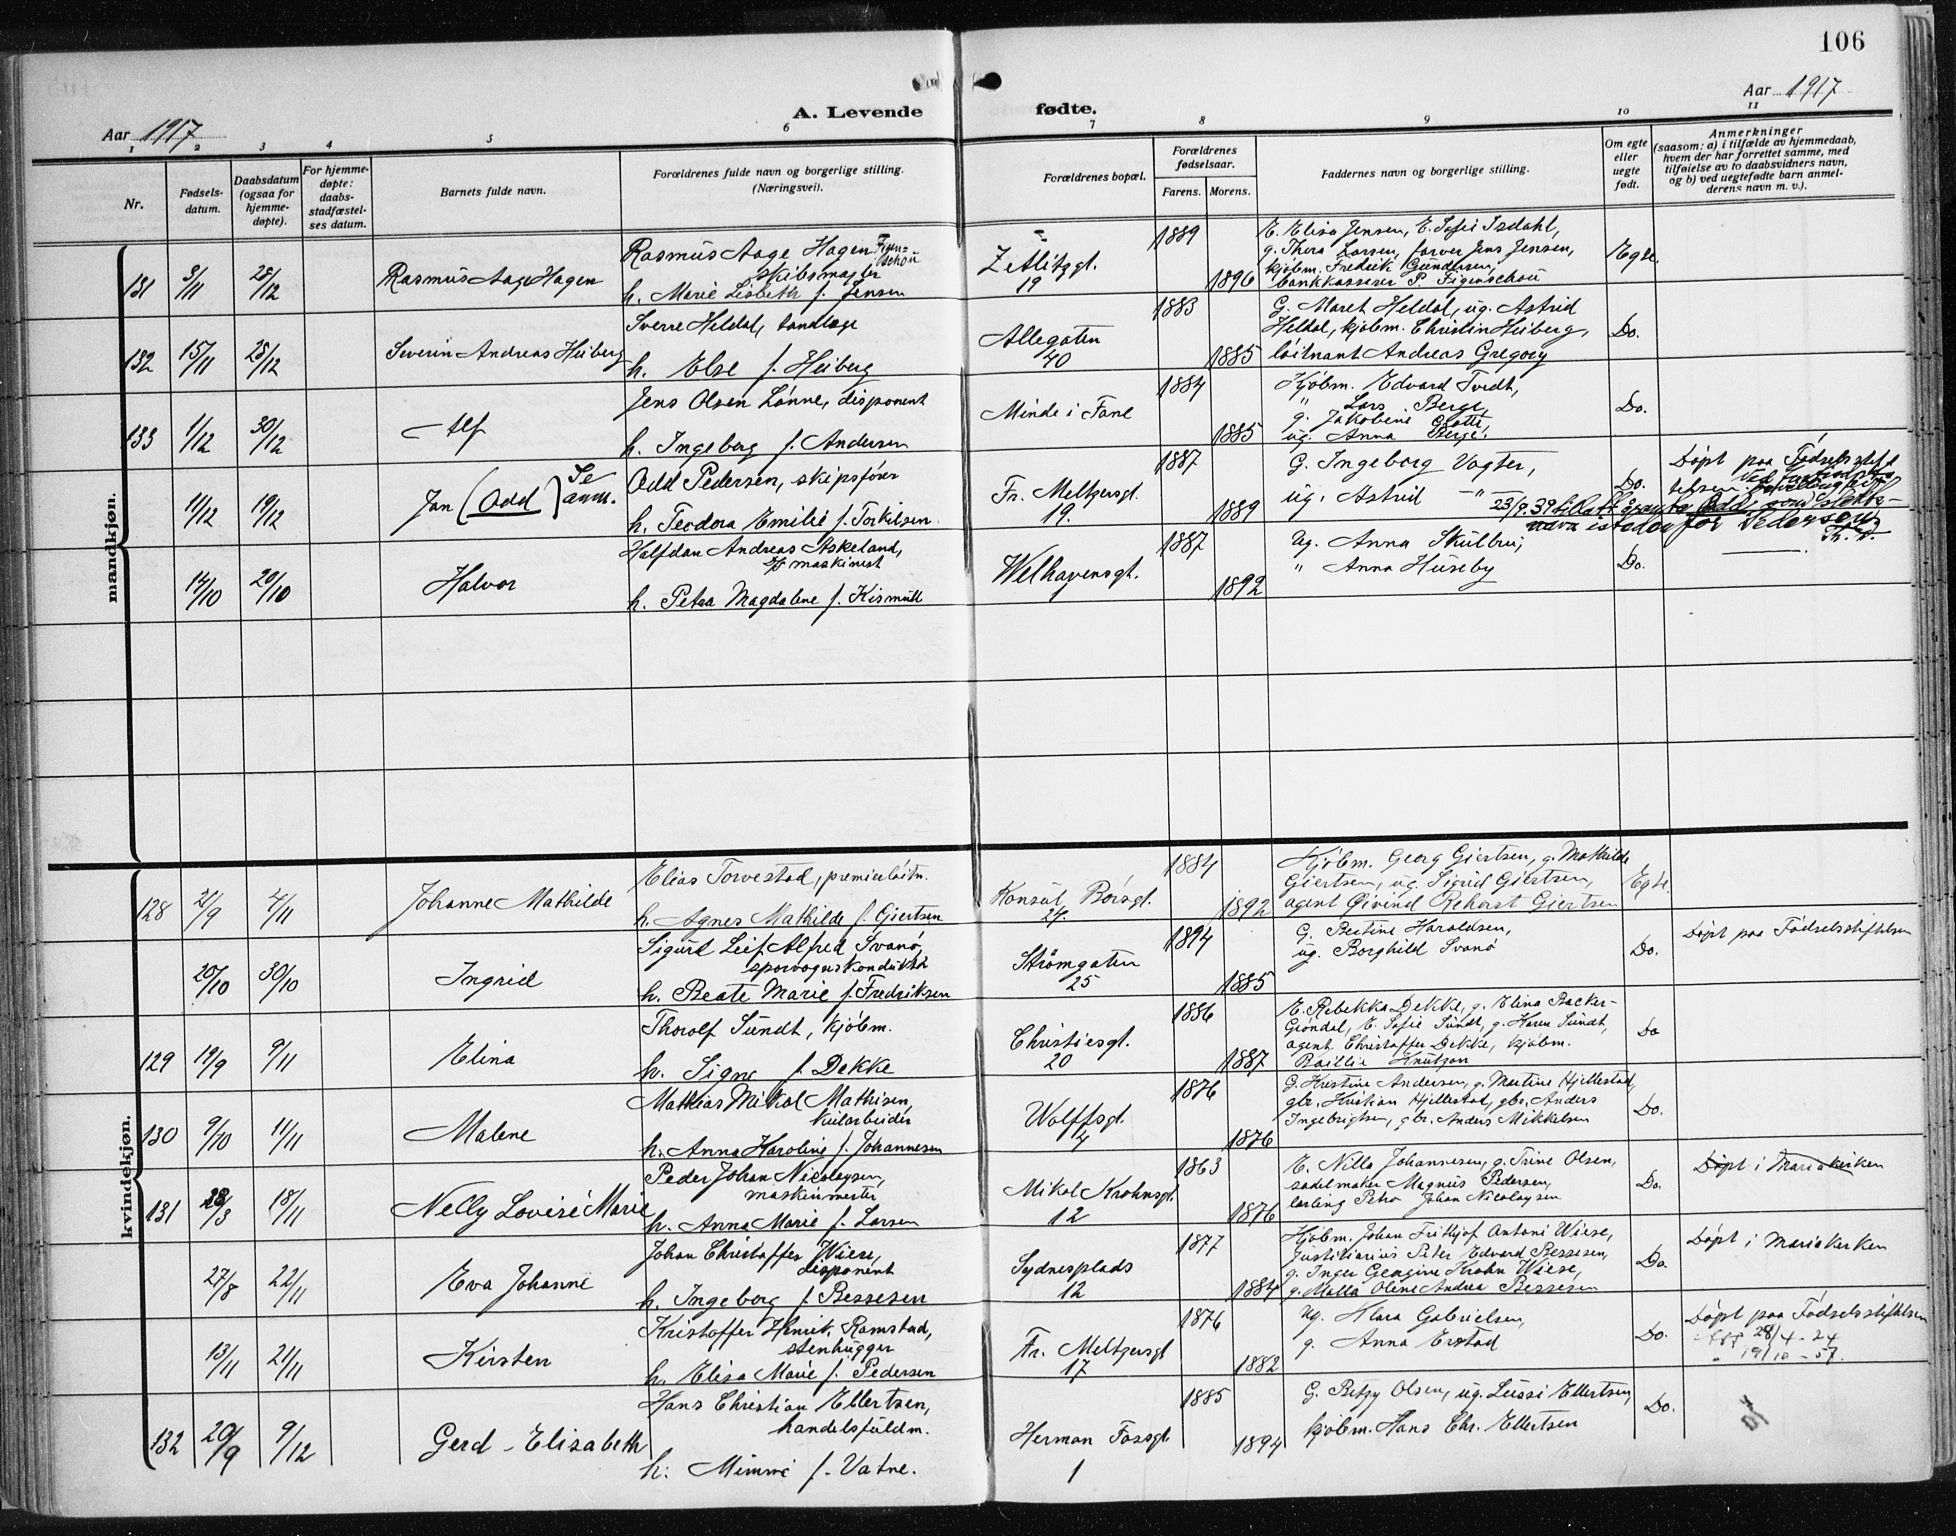 106
Aar 1917
A. Levende fødte.
Aar 1917
1 2 3 4 5 6 7 8 9 10 11
Nr.
Fødsels-
datum.
Daabsdatum
(ogsaa for
hjemme-
døpte).
For hjemme-
døpte:
daabs-
stadfæstel-
ses datum.
Barnets fulde navn.
Forældrenes fulde navn og borgerlige stilling.
(Næringsvei).
Forældrenes bopæl.
Forældrenes
fødselsaar.
Farens. Morens.
Faddernes navn og borgerlige stilling.
Om egte
eller
uegte
født.
Anmerkninger
(saasom: a) i tilfælde av hjemmedaab,
hvem der har forrettet samme, med
tilføielse av to daabsvidners navn,
og b) ved uegtefødte barn anmel-
derens navn m. v.).
mandkjøn.
131 3/11 28/12 Rasmus Aage Hagen
Rasmus Aage Hagen Figen-
schou
skibsmægler
h. Marie Lisbeth f. Jensen
Zetlitzgt.
19
1889
1896
E. Elisa Jensen, E. Sofie Isdahl,
g. Thora Larsen, farver Jens Jensen,
kjøbm. Fredrik Gundersen,
bankkasserer P. Figenschou
Egte.
132 15/11 28/12 Severin Andreas Heiberg
Sverre Heldal, tandlæge
h. Else f. Heiberg
Allegaten
40
1883
1885
G. Maret Heldal, ug. Astrid
Heldal, kjøbm. Christin Heiberg,
løitnant Andreas Gregory
Do.
133 1/12 30/12 Alf
Jens Olsen Lønne, disponent
h. Ingeborg f. Andersen
Minde i Fane
1884
1885
Kjøbm. Edvard Tvedt,
" Lars Berge,
g. Jakobine Totte,
ug. Anna Berge.
Do.
11/12 19/12 Jan (Odd) Se
anm.
Odd Pedersen, skipsfører
h. Teodora Emilie f. Torkilsen.
Fr. Meltzersgt.
19.
1887
1889
G. Ingeborg Vogter,
ug. Astrid — " —
Do.
Døpt paa Fødselsstif-
telsen.
23/9.39 Odd som slekts-
navn istedenfor Pedersen.
14/10 20/10 Halvor
Halfdan Andreas Askeland,
maskinist
h. Petra Magdalene f. Kismull
Welhavensgt.
1
1887
1892
Ug. Anna Skulbru,
" Anna Huseby
Do.
kvindekjøn.
128 21/9 4/11 Johanne Mathilde
Elias Torvestad, premierløitn.
h. Agnes Mathilde f. Gjertsen
Konsul Børsgt.
24.
1884
1892
Kjøbm. Georg Gjertsen, g. Mathilde
Gjertsen, ug. Sigrid Gjertsen,
agent Øivind Rehorst Gjertsen
Egte.
20/10 30/10 Ingrid
Sigurd Leif Alfred Svanø,
sporvognskonduktør
h. Beate Marie f. Fredriksen
Strømgaten
25
1894
1885
G. Bertine Haraldsen,
ug. Borghild Svanø
Do.
Døpt paa Fødselsstiftelsen
129 19/9 9/11 Elina
Thorolf Sundt, kjøbm.
h. Signe f. Dekke
Christiesgt.
20
1886
1887
E. Rebekka Dekke, g. Elina Backer-
Grøndal, E. Sofie Sundt, g. Karen Sundt,
agent Christoffer Dekke, kjøbm.
Baillie Knutzon
Do
130 9/10 11/11 Malene
Mathias Mikal Mathisen,
kularbeider
h. Anna Karoline f. Johannesen
Wolffsgt.
4
1876
1876
G. Kristine Andersen, g. Martine Hjellestad,
gbr. Kristian Hjellestad, gbr. Anders
Ingebrigtsen, gbr. Anders Mikkelsen
Do.
131 23/8 18/11 Nelly Lovise Marie
Peder Johan Nicolaysen,
maskinmester
h. Anna Marie f. Larsen
Mikal Krohnsgt.
12
1863
1876
E. Nilla Johannesen, g. Trine Olsen,
sadelmaker Magnus Pedersen,
lærling Peter Johan Nicolaysen
Do.
Døpt i Mariakirken
27/8 22/11 Eva Johanne
Johan Christoffer Wiese,
disponent
h. Ingeborg f. Bessesen
Sydnesplads
12
1877
1884
Kjøbm. Johan Fridtjof Antoni Wiese,
Justitiarius Peter Edvard Bessesen,
g. Inger Georgine Krohn Wiese,
g. Malla Oline Andrea Bessesen
Do.
Døpt i Mariakirken
13/11 21/11 Kirsten
Kristoffer Henrik Ramstad,
stenhugger
h. Elisa Marie f. Pedersen
Fr. Meltzersgt
17
1876
1882
Ug. Klara Gabrielsen,
g. Anna Erstad
Do.
Døpt paa Fødselsstiftelsen
28/4 - 24
" 19/10 - 57.
132 20/9 9/12 Gerd - Elizabeth
Hans Christian Ellertsen,
handelsfuldm.
h. Mimmi f. Vatne.
Herman Fossgt
1
1885
1894
G. Betzy Olsen, ug. Lussi Ellertsen,
kjøbm. Hans Chr. Ellertsen
Do.